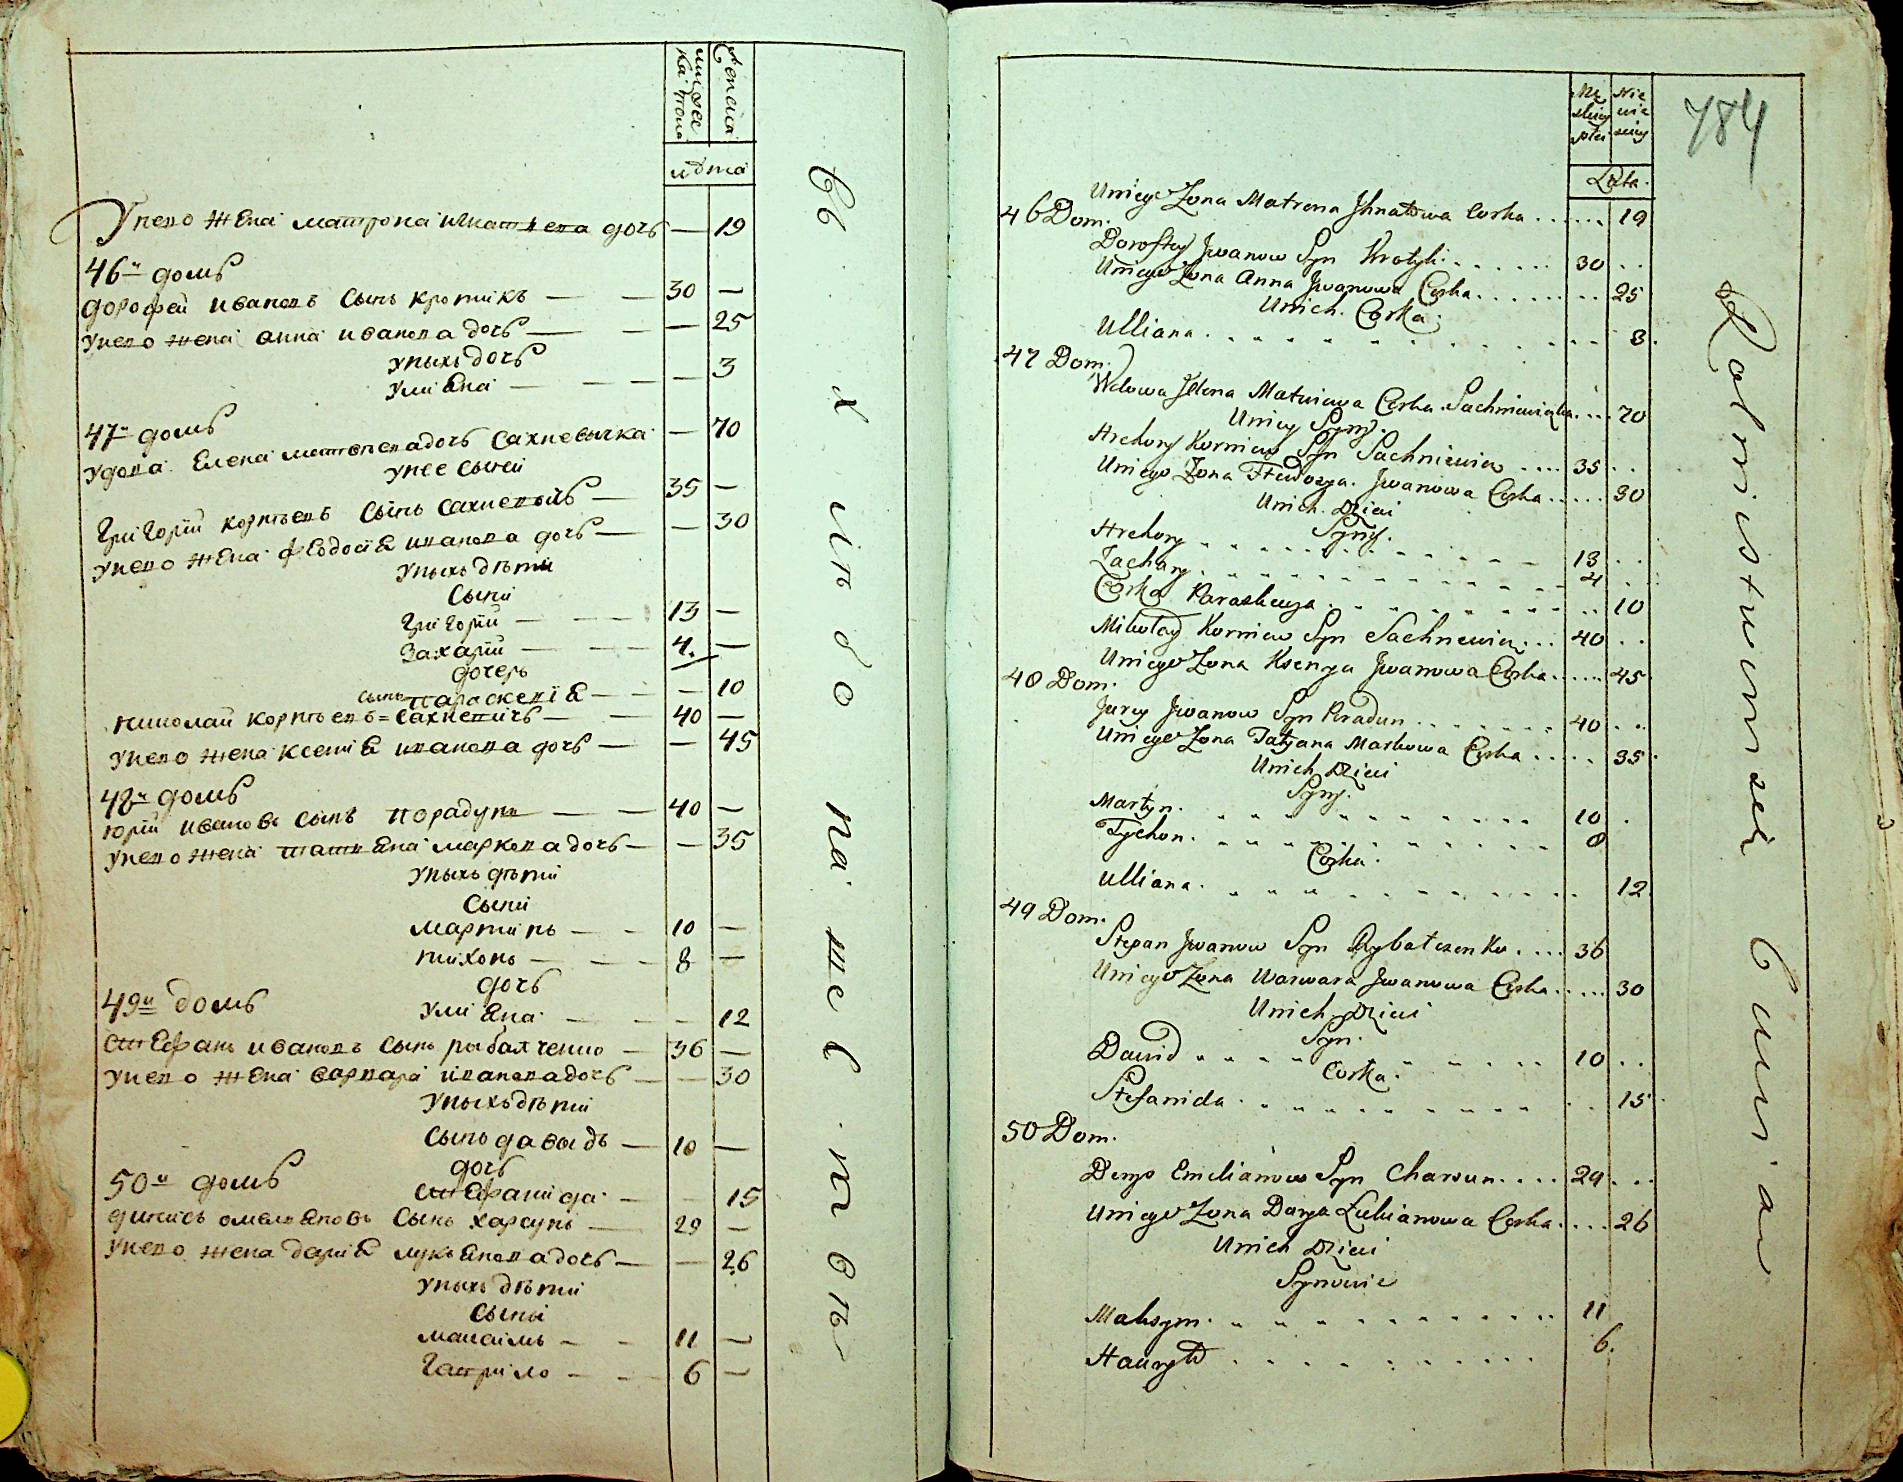 мужеска пола
женска
лѣта
У него жена матрона игнатѣева дочь — 19
46й домъ
дорофей ивановъ сынъ кротикъ — — 30 —
у него жена анна иванова дочь — — — 25
у нихъ дочь
улиѣна — — — — 3
47й домъ
удова елена матвѣева дочь сахневичка — 70
у нее сыни
григорїй корнѣевъ сынъ сахневичъ — 35 —
у него жена феодосїѣ иванова дочь — — 30
у нихъ дѣти
сыни
григорїй — — — 13 —
захарїй — — — 4. —
дочерь
параскевїѣ — — — 10
николай корнѣевъ = сынъ сахневичъ — — 40 —
у него жена ксенїѣ иванова дочь — — 45
48й домъ
юрїй ивановъ сынъ порадунъ — — 40 —
у него жена татѣѣна маркова дочь — — 35
у нихъ дѣти
сыни
мартинъ — — 10 —
тихонъ — — — 8 —
дочь
49й домъ
улиѣна — — 12
стефанъ ивановъ сынъ рыбалченко — 36 —
у него жена варвара иванова дочь — — 30
у нихъ дѣти
сынъ давыдъ — 10 —
дочь
50й домъ
стефанида — — 15
динисъ омелѣновъ сынъ харсунъ — 29 —
у него жена дарїѣ лукѣѣнова дочь — — 26
у нихъ дѣти
сыни
максимъ — — 11 —
гаврило — — 6 —
784
Męskiey płci
Niewiesciey
Lata.
U niego Zona Matrena Jhnatowa Corka . . . . . . 19
46 Dom.
Dorofiey Jwanow Syn Krotyk . . . . . . 30 . .
U niego Zona Anna Jwanowa Corka . . . . . . . . 25
U nich Corka.
Ulliana . . . . . . . . . . . . 3.
47 Dom.
Wdowa Jlena Matwiewa Corka Sachniewiczka . . . . 70
U niey Syny.
Hrehory Korniew Syn Sachniewicz . . . . 35 . .
U niego Zona Fteodozya Jwanowa Corka . . . . . 30
U nich Dzieci
Syny.
Hrehory . . . . . . . . . . . 13 . .
Zachary . . . . . . . . . . . 4 . .
Corka Paraskewya . . . . . . . . . . 10
Mikołay Korniew Syn Sachnewicz . . . 40 . .
U niego Zona Ksenya Jwanowa Corka . . . . . 45
48 Dom.
Jurey Jwanow Syn Pradun . . . . . . . 40 . .
U niego Zona Tatjana Markowa Corka . . . . . 35.
U nich Dzieci
Syny.
Martyn . . . . . . . . . . . 10 .
Tychon . . . . . . . . . . . 8
Corka.
Ulliana . . . . . . . . . . . . 12.
49 Dom.
Stepan Jwanow Syn Rybałczenko . . . . 36
U niego Zona Warwara Jwanowa Corka . . . . . 30
U nich Dzieci
Syn.
Dawid . . . . . . . . . . . 10 . .
Corka.
Stefanida . . . . . . . . . . . 15.
50 Dom.
Denys Emelianow Syn Charsun . . . . 29 . . .
U niego Zona Darya Łukianowa Corka . . . . 26
U nich Dzieci
Synowie
Maksym . . . . . . . . . . . 11
Hawryło . . . . . . . . . . 6.